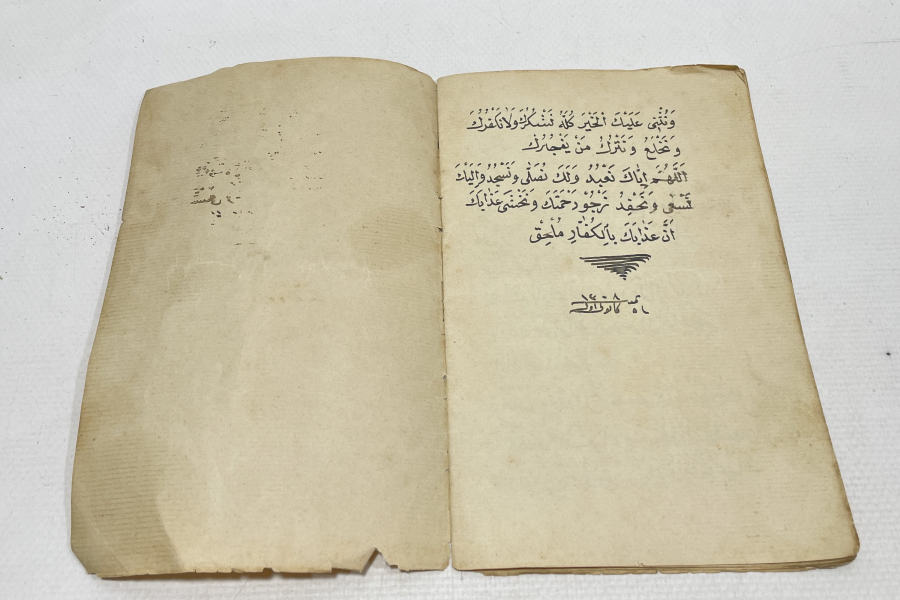 وَنُثْنِى عَلَيْكَ الْخَيْرَ كُلَّهُ نَشْكُرُكَ وَلَا نَكْفُرُكَ
وَنَخْلَعُ وَنَتْرُكُ مَنْ يَفْجُرُكَ
اَللّٰهُمَّ اِيَّاكَ نَعْبُدُ وَلَكَ نُصَلِّى وَنَسْجُدُ وَاِلَيْكَ
نَسْعٰى وَنَحْفِدُ نَرْجُو رَحْمَتَكَ وَنَخْشٰى عَذَابَكَ
اَنَّ عَذَابَكَ بِالْكُفَّارِ مُلْحِقٌ
كانون اول